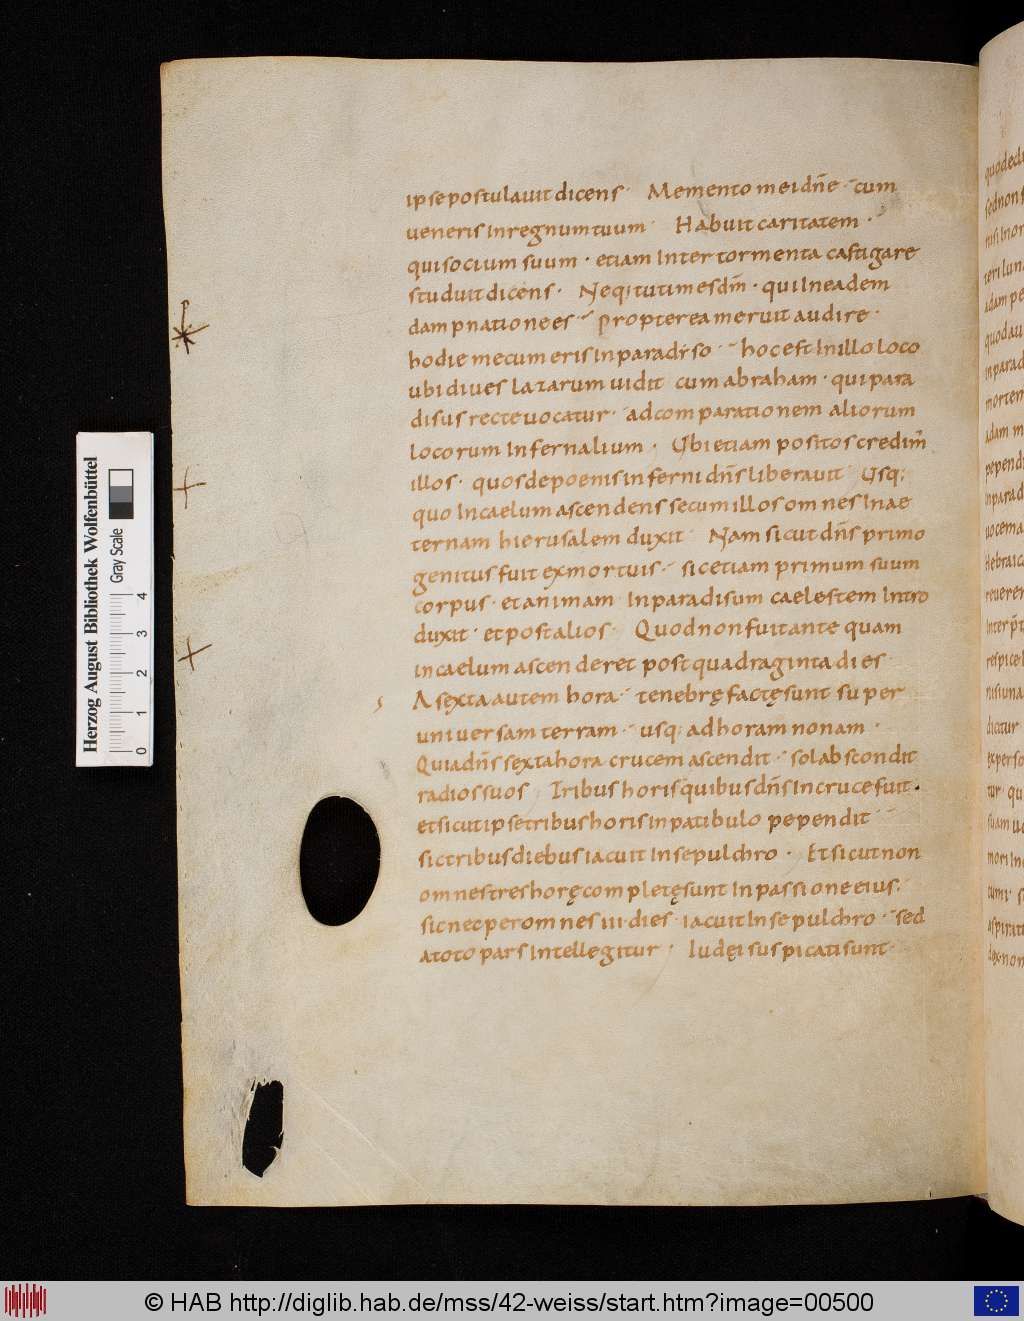 ipse postulauit dicens · Memento mei dn̄e · cum
ueneris in regnum tuum · Habuit caritatem ·
qui socium suum · etiam inter tormenta castigare
studuit dicens · Neq; tu times dm̄ · qui in eadem
dampnatione es · propterea meruit audire ·
hodie mecum eris in paradyso · hoc est in illo loco
ubi diues lazarum uidit cum abraham · qui para
disus recte uocatur · ad comparationem aliorum
locorum infernalium · Ubi etiam positos credim̄
illos · quos de poenis inferni dn̄s liberauit · Usq;
quo in caelum ascendens secum illos omnes in ae
ternam hierusalem duxit · Nam sicut dn̄s primo
genitus fuit ex mortuis · sic etiam primum suum
corpus · et animam in paradisum caelestem intro
duxit · et post alios · Quod non fuit ante quam
in caelum ascenderet post quadraginta dies ·
A sexta autem hora · tenebrę factę sunt super
uniuersam terram · usq; ad horam nonam ·
Quia dn̄s sexta hora crucem ascendit · sol abscondit
radios suos Tribus horis quibus dn̄s in cruce fuit ·
et sicut ipse tribus horis in patibulo pependit
sic tribus diebus iacuit in sepulchro · Et sicut non
omnes tres horę completę sunt in passione eius ·
sic nec per omnes iii · dies · iacuit in sepulchro · sed
a toto pars intellegitur · Iudęi suspicati sunt ·
Herzog August Bibliothek Wolfenbüttel
Gray Scale
0 1 2 3 4
© HAB http://diglib.hab.de/mss/42-weiss/start.htm?image=00500